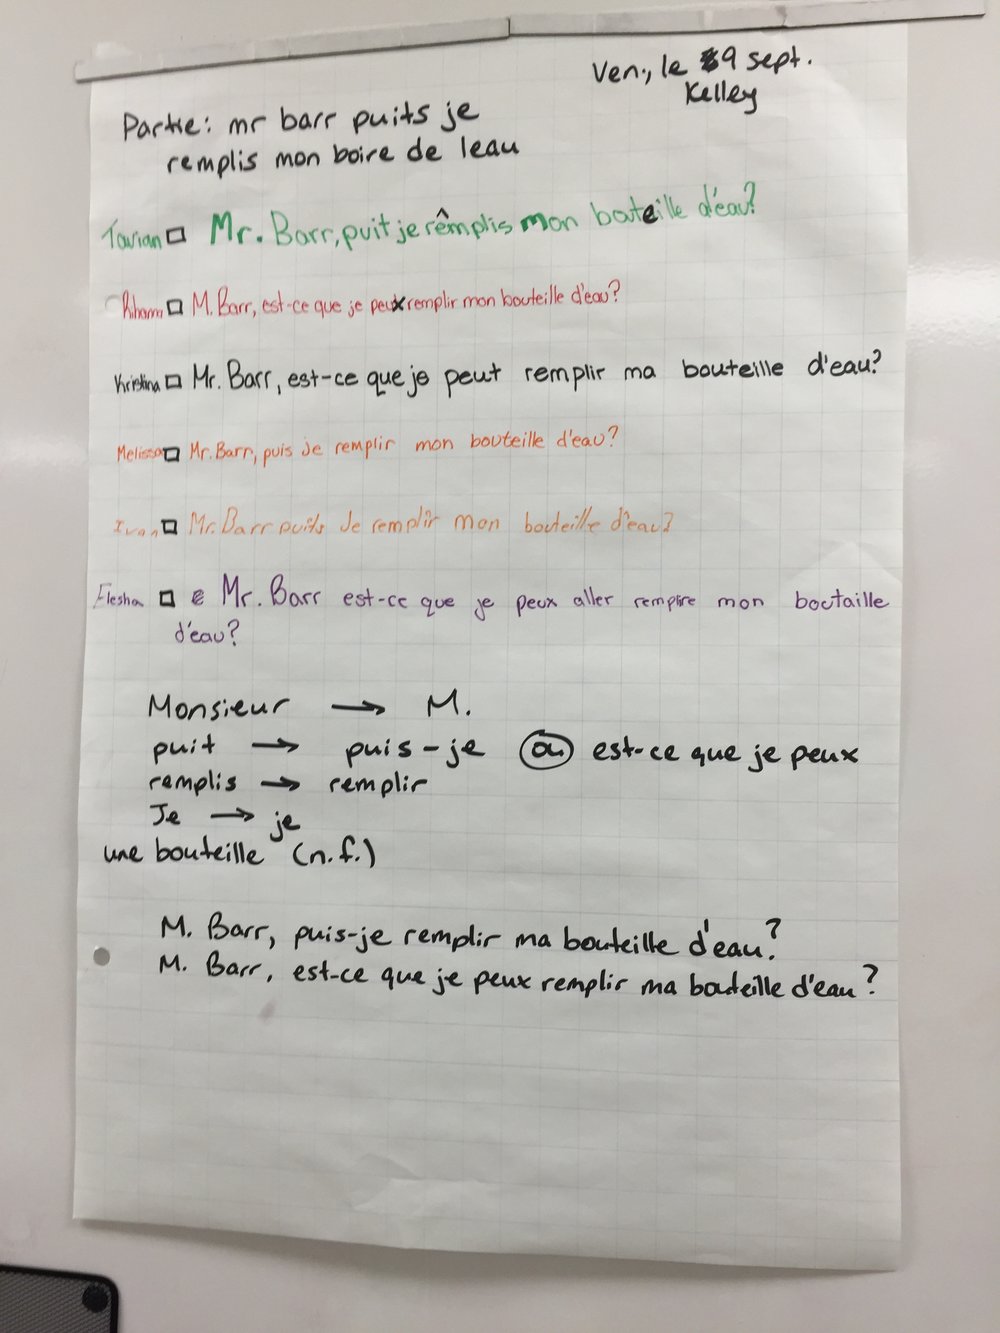 Ven., le 9 sept.
Kelley
Partie: mr barr puits je
remplis mon boire de leau
Tavian □ Mr. Barr, puit je rêmplis mon bouteille d'eau?
Rihanna □ M. Barr, est-ce que je peux remplir mon bouteille d'eau?
Kristina □ Mr. Barr, est-ce que je peut remplir ma bouteille d'eau?
Melissa □ Mr. Barr, puis Je remplir mon bouteille d'eau?
Ivan □ Mr. Barr puits Je remplir mon bouteille d'eau?
Elesha □ Mr. Barr est-ce que je peux aller rempire mon boutaille
d'eau?
Monsieur → M.
puit → puis-je ou est-ce que je peux
remplis → remplir
Je → je
une bouteille (n.f.)
M. Barr, puis-je remplir ma bouteille d'eau?
M. Barr, est-ce que je peux remplir ma bouteille d'eau?